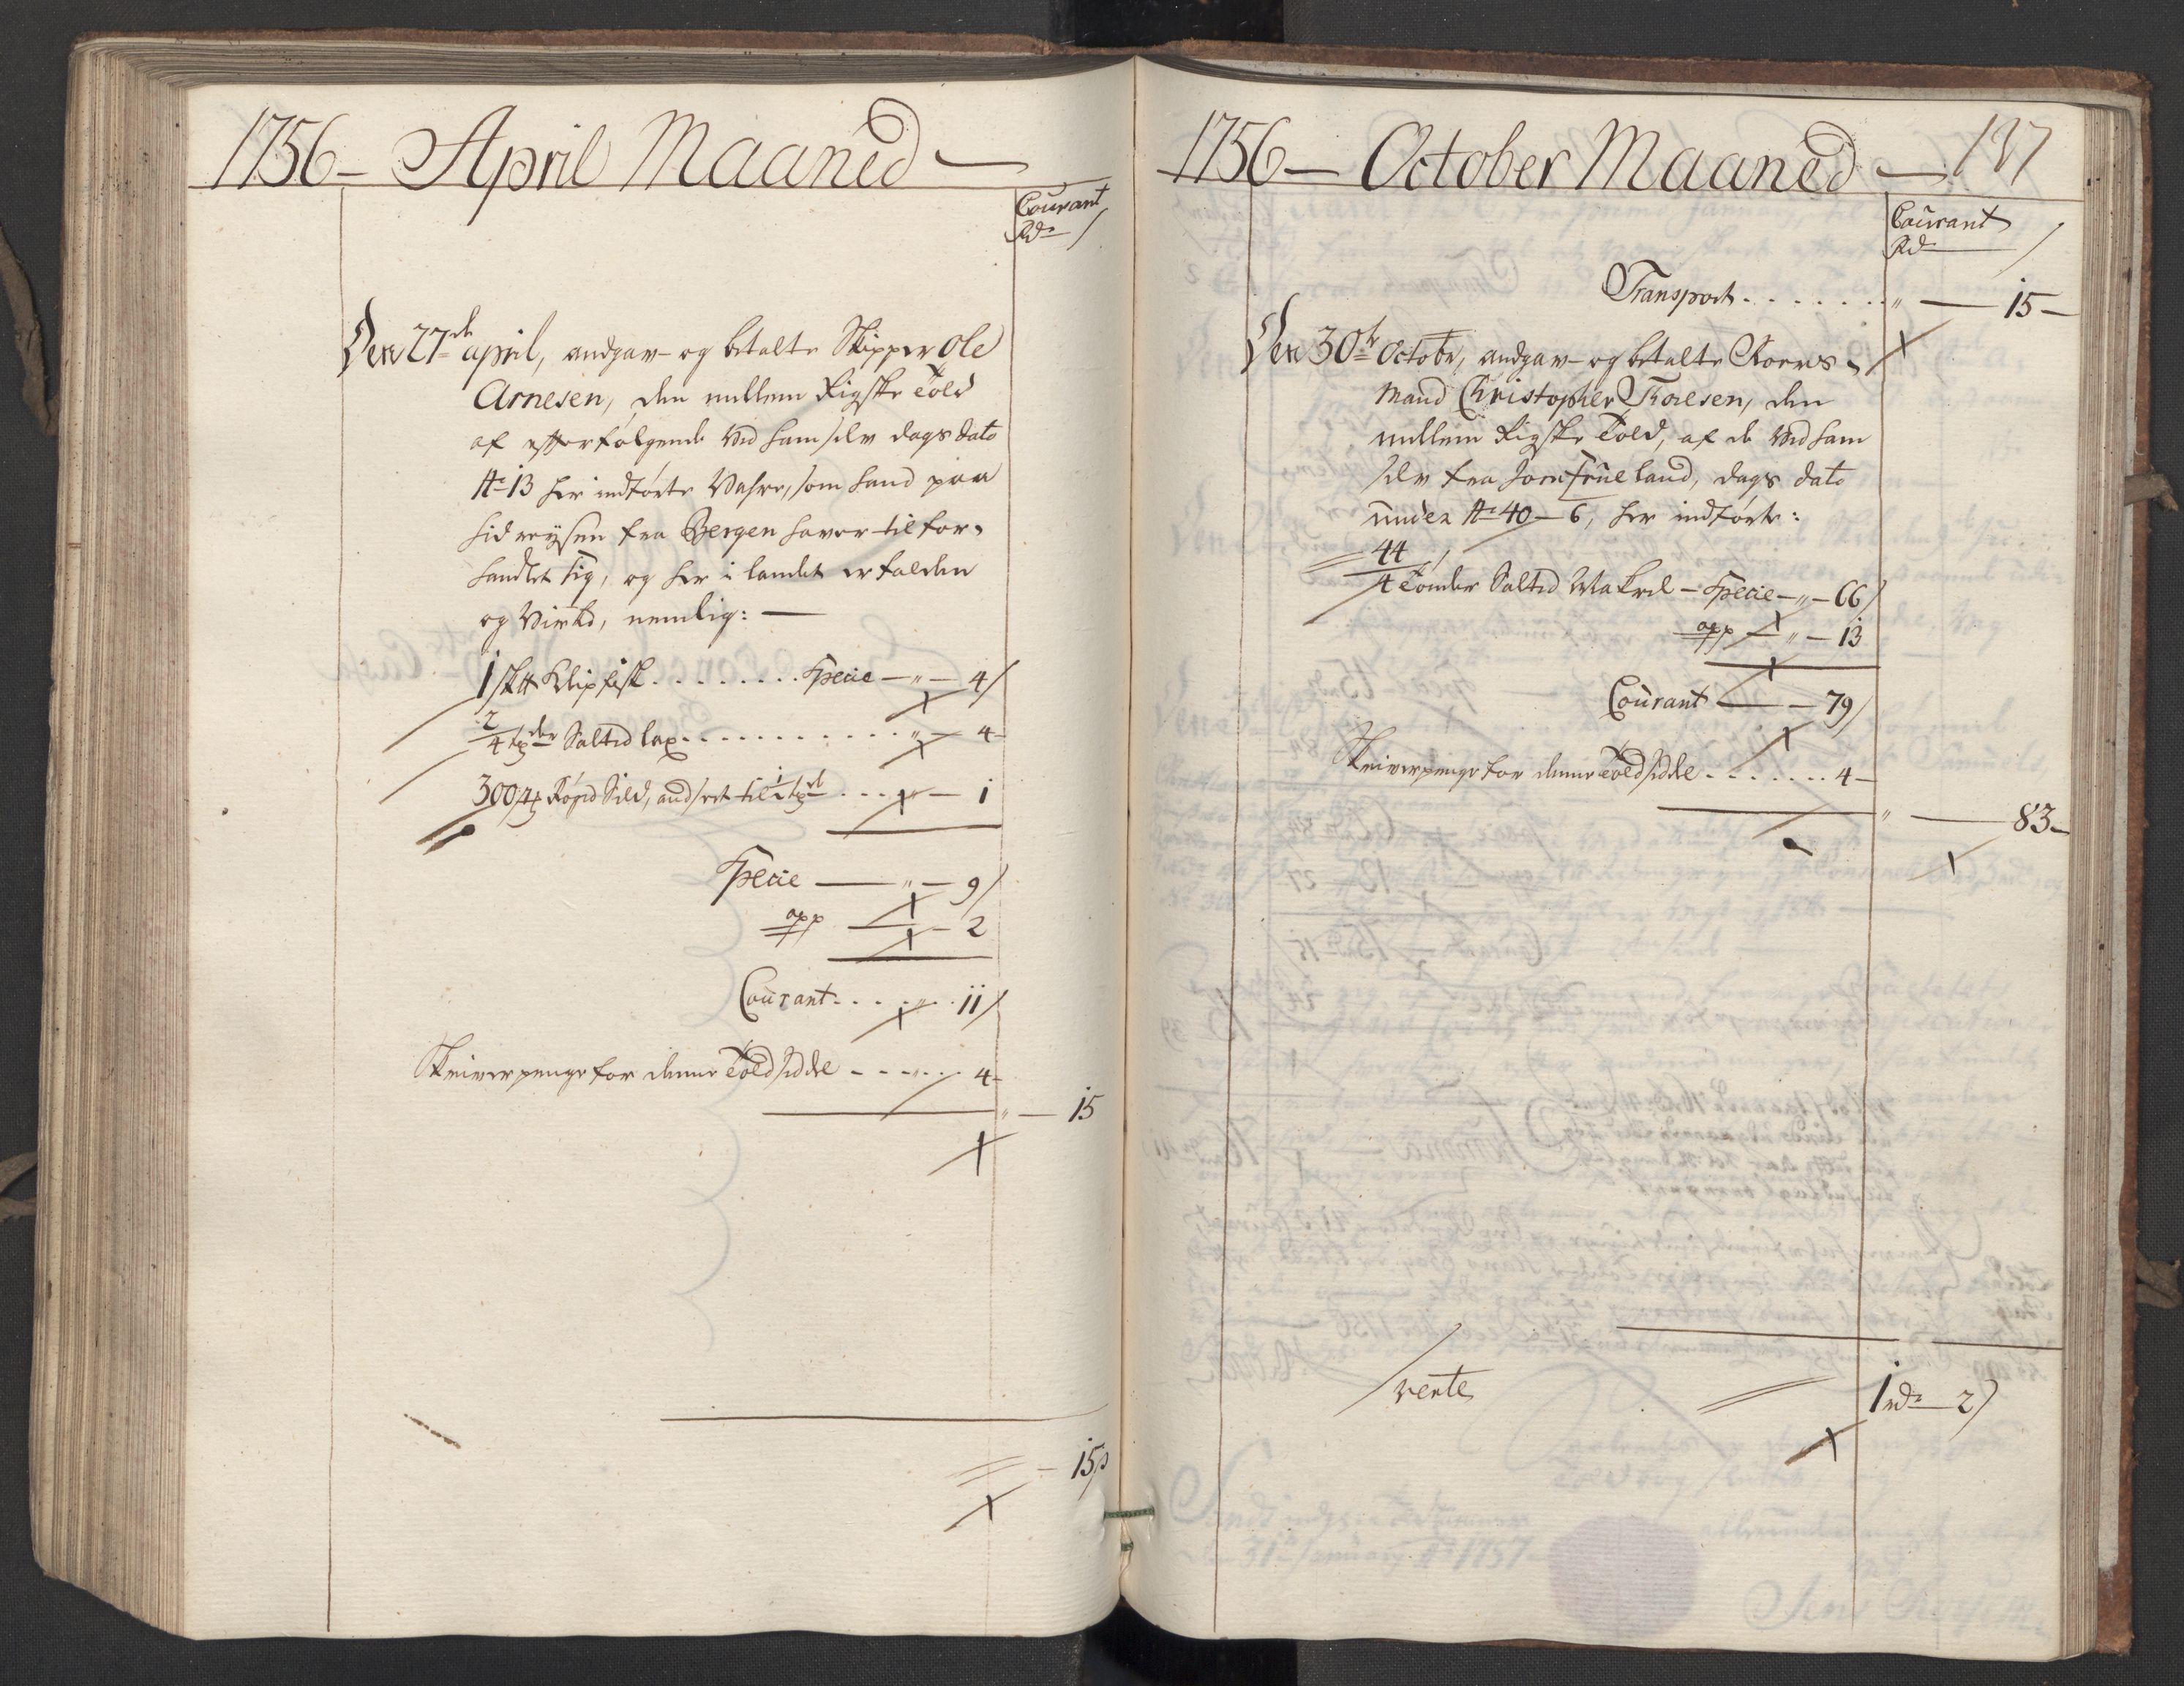 1756 – April Maaned –
Courant
Rdr /
Den 27de april, andgav- og betalte Skipper Ole
Arnesen, den mellem Rigske Told
af efterfølgende ved ham selv dags dato
No 13 her indførte Vahre, som hand paa
hidreysen fra Bergen haver til for-
handlet sig, og her i landet er falden
og Virked, nemlig: —
1 sk℔ Klipfisk . . . . . . . . Specie — „ — 4/
2/4 tønder Salted lax . . . . . . . . . . „ — 4 –
300 Røged Sild, andsert til . . . . „ — 1
Specie — „ — 9/
opp — 2
Courant . . . . „ . . 11/
Skriverpenge for denne Toldseddel - - - „ . . 4 –
„ — 15
– 15/
1756 – October Maaned – 137
Courant
Rdr /
Transport . . . . . . . „ — 15 –
Den 30te Octobr, andgav- og betalte Roers-
mand Christopher Thoresen, den
mellem Rigske Told, af de ved ham
selv fra Jomfrueland, dags dato
under No 40 – 6, her indførte:
44
/4 Tønder Salted Makrel – Specie – „ – 66/
opp — „ — 13
Courant — — 79/
Skriverpenge for denne Toldseddel . . . . . . . 4 –
„ — 83 –
verte
1 rdr — 2/